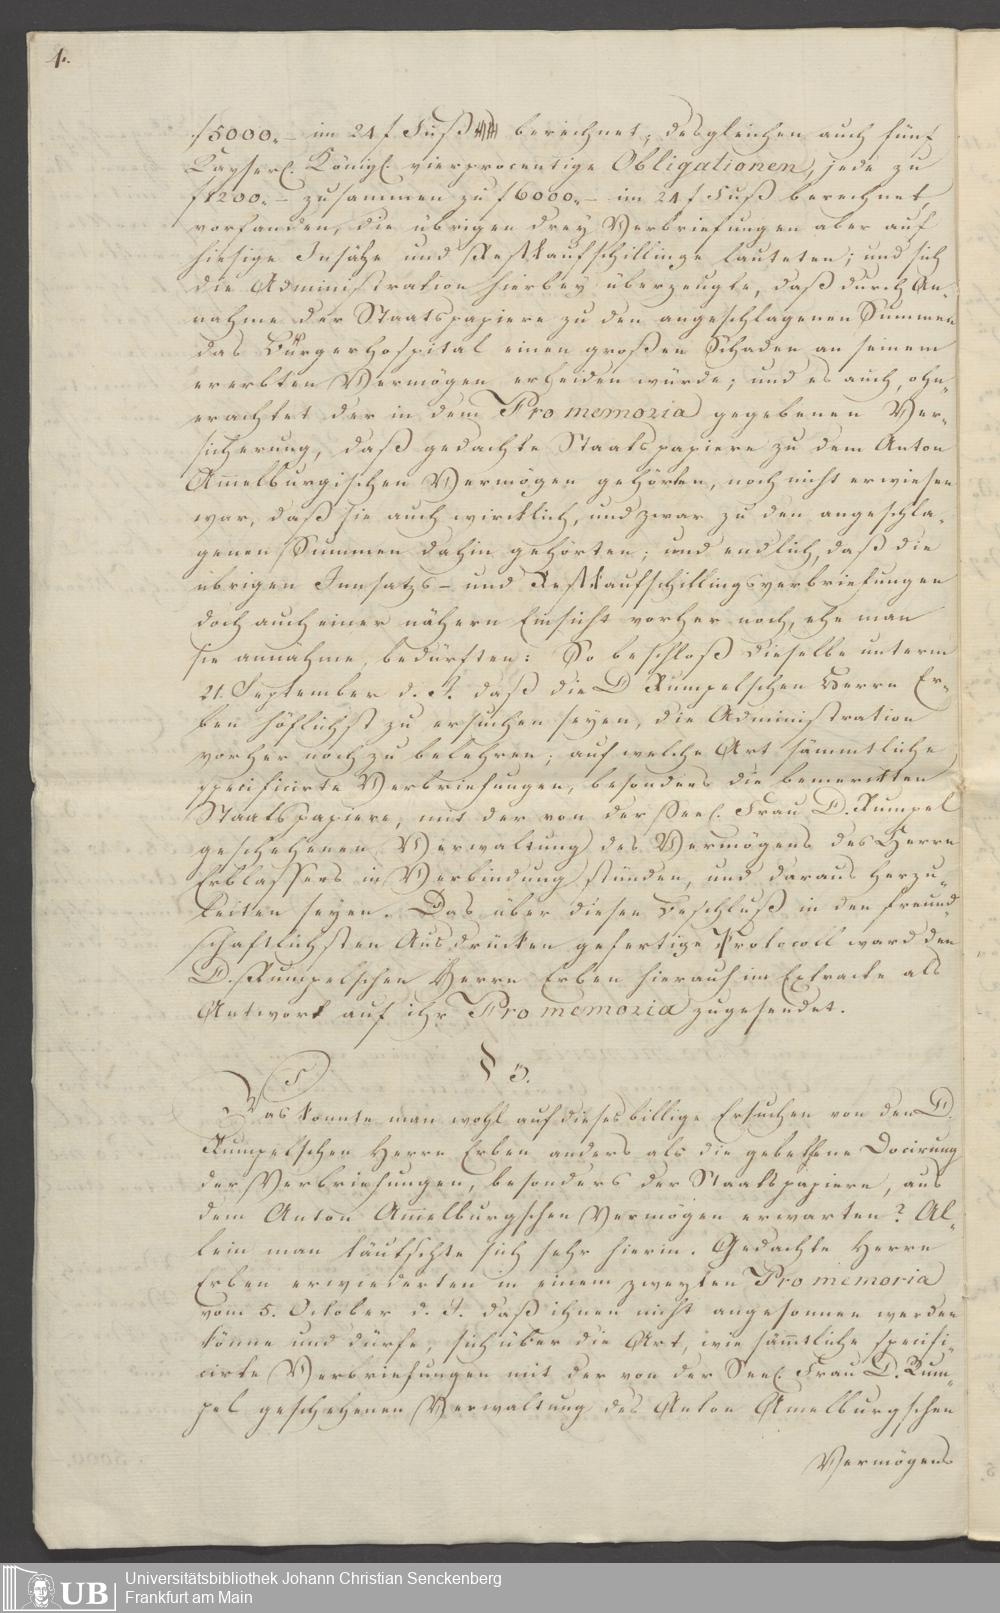 4.
f 5000.– im 24 f Fuß berechnet; desgleichen auch fünf
Kayserl. Königl. vierprocentige Obligationen, jede zu
f 1200.– zusammen zu f 6000.– im 24 f Fuß berechnet,
vorfanden, die übrigen drey Verbriefungen aber auf
hiesige Insätze und Restkaufschillinge lauteten; und sich
die Administration hierbey überzeugte, daß durch An-
nahme der Staatspapiere zu den angeschlagenen Summen
das Bürgerhospital einen großen Schaden an seinem
ererbten Vermögen erleiden würde; und es auch, ohn-
erachtet der in dem Pro memoria gegebenen Ver-
sicherung, daß gedachte Staatspapiere zu dem Anton
Am̄elburgischen Vermögen gehörten, noch nicht erwiesen
war, daß sie auch wircklich, und zwar zu den angeschla-
genen Summen dahin gehörten; und endlich, daß die
übrigen Innsatzs- und Restkaufschillingsverbriefungen
doch auch einer nähern Einsicht vorher noch, ehe man
sie annähme, bedürften: So beschloß dieselbe unterm
21. September d. J. daß die D. Rumpelschen Herrn Er-
ben höflichst zu ersuchen seyen, die Administration
vorher noch zu belehren; auf welche Art sämmtliche
specificirte Verbriefungen, besonders die bemerckten
Staatspapiere, mit der von der Seel. Frau D. Rumpel
geschehenen Verwaltung des Vermögens des Herrn
Erblassers in Verbindung stünden, und daraus herzu-
leiten seyen. Das über diesen Beschluß in den freund-
schaftlichsten Ausdrücken gefertige Protocoll ward den
D. Rumpelschen Herrn Erben hierauf im Extracte als
Antwort auf ihr Pro memoria zugesendet.
§ 5.
Was konnte man wohl auf dieses billige Ersuchen von den D.
Rumpelschen Herrn Erben anders als die gebethene Docirung
der Verbriefungen, besonders der Staatspapiere, aus
dem Anton Am̄elburgschen Vermögen erwarten? Al-
lein man täuschte sich sehr hierin. Gedachte Herrn
Erben erwiederten in einem zweyten Pro memoria
vom 5. October d. J. daß ihnen nicht angesonnen werden
könne und dürfe, sich über die Art, wie säm̄tliche specifi-
cirte Verbriefungen mit der von der Seel. Frau D. Rum-
pel geschehenen Verwaltung des Anton Amelburgschen
Vermögens
UB Universitätsbibliothek Johann Christian Senckenberg
Frankfurt am Main